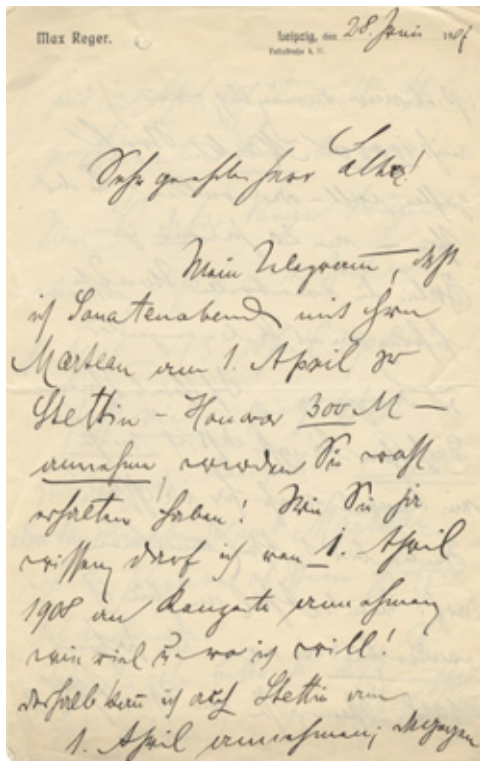 Max Reger.
Leipzig, den 28. Juni 1907
Sehr geehrter Herr
Mein Telegramm, daß
ich Sonatenabend mit Herrn
Marteau am 1. April zu
Stettin – Honorar 300 M –
annehme, werden Sie wohl
erhalten haben! Wie Sie ja
wissen, darf ich von 1. April
1908 an Konzerte annehmen
wie viel u. wo ich will!
deshalb kann ich auch Stettin am
1. April annehmen; dagegen